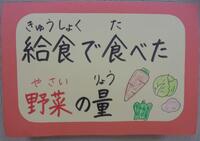 きゅうしょく た
給食で食べた
やさい りょう
野菜の量